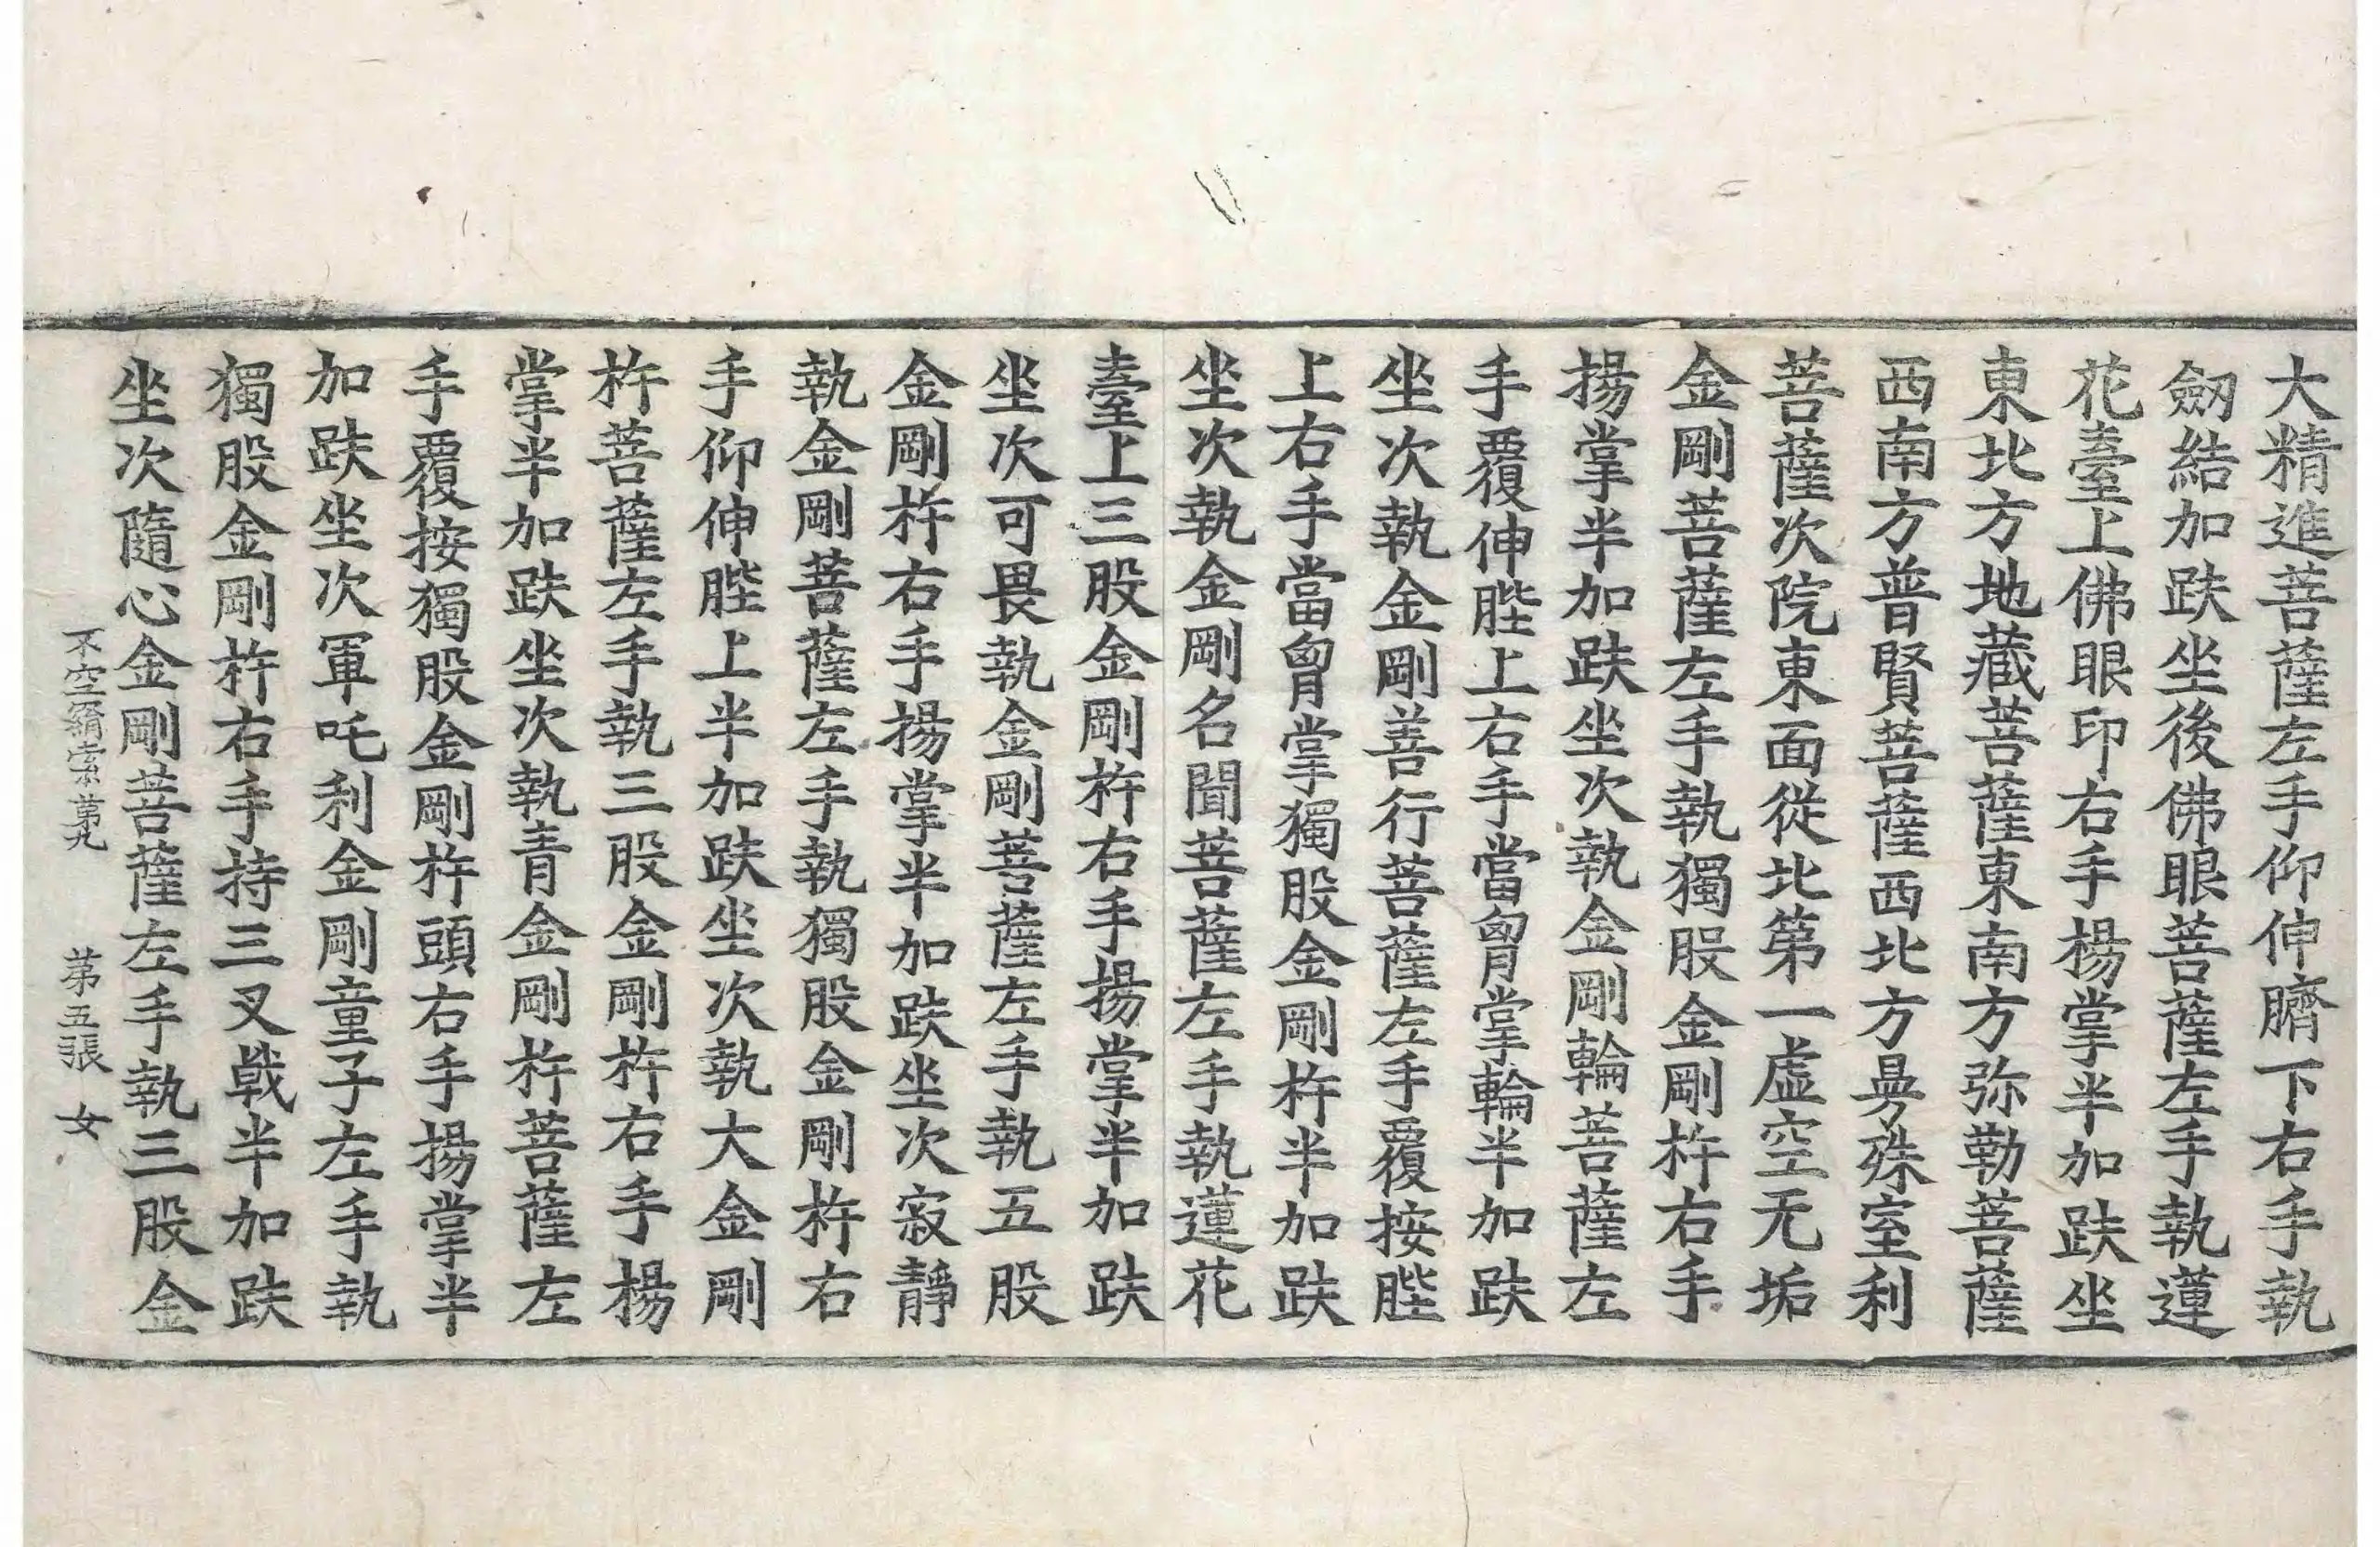 大精進菩薩左手仰伸臍下右手執
劒結加趺坐後佛眼菩薩左手執蓮
花臺上佛眼印右手揚掌半加趺坐
東北方地藏菩薩東南方弥勒菩薩
西南方普賢菩薩西北方曼殊室利
菩薩次院東面從北第一虛空无垢
金剛菩薩左手執獨股金剛杵右手
揚掌半加趺坐次執金剛輪菩薩左
手覆伸䏶上右手當胷掌輪半加趺
坐次執金剛善行菩薩左手覆按䏶
上右手當胷掌獨股金剛杵半加趺
坐次執金剛名聞菩薩左手執蓮花
臺上三股金剛杵右手揚掌半加趺
坐次可畏執金剛菩薩左手執五股
金剛杵右手揚掌半加趺坐次寂靜
執金剛菩薩左手執獨股金剛杵右
手仰伸䏶上半加趺坐次執大金剛
杵菩薩左手執三股金剛杵右手揚
掌半加趺坐次執青金剛杵菩薩左
手覆按獨股金剛杵頭右手揚掌半
加趺坐次軍吒利金剛童子左手執
獨股金剛杵右手持三叉戟半加趺
坐次隨心金剛菩薩左手執三股金
不空羂索第九 第五張 女